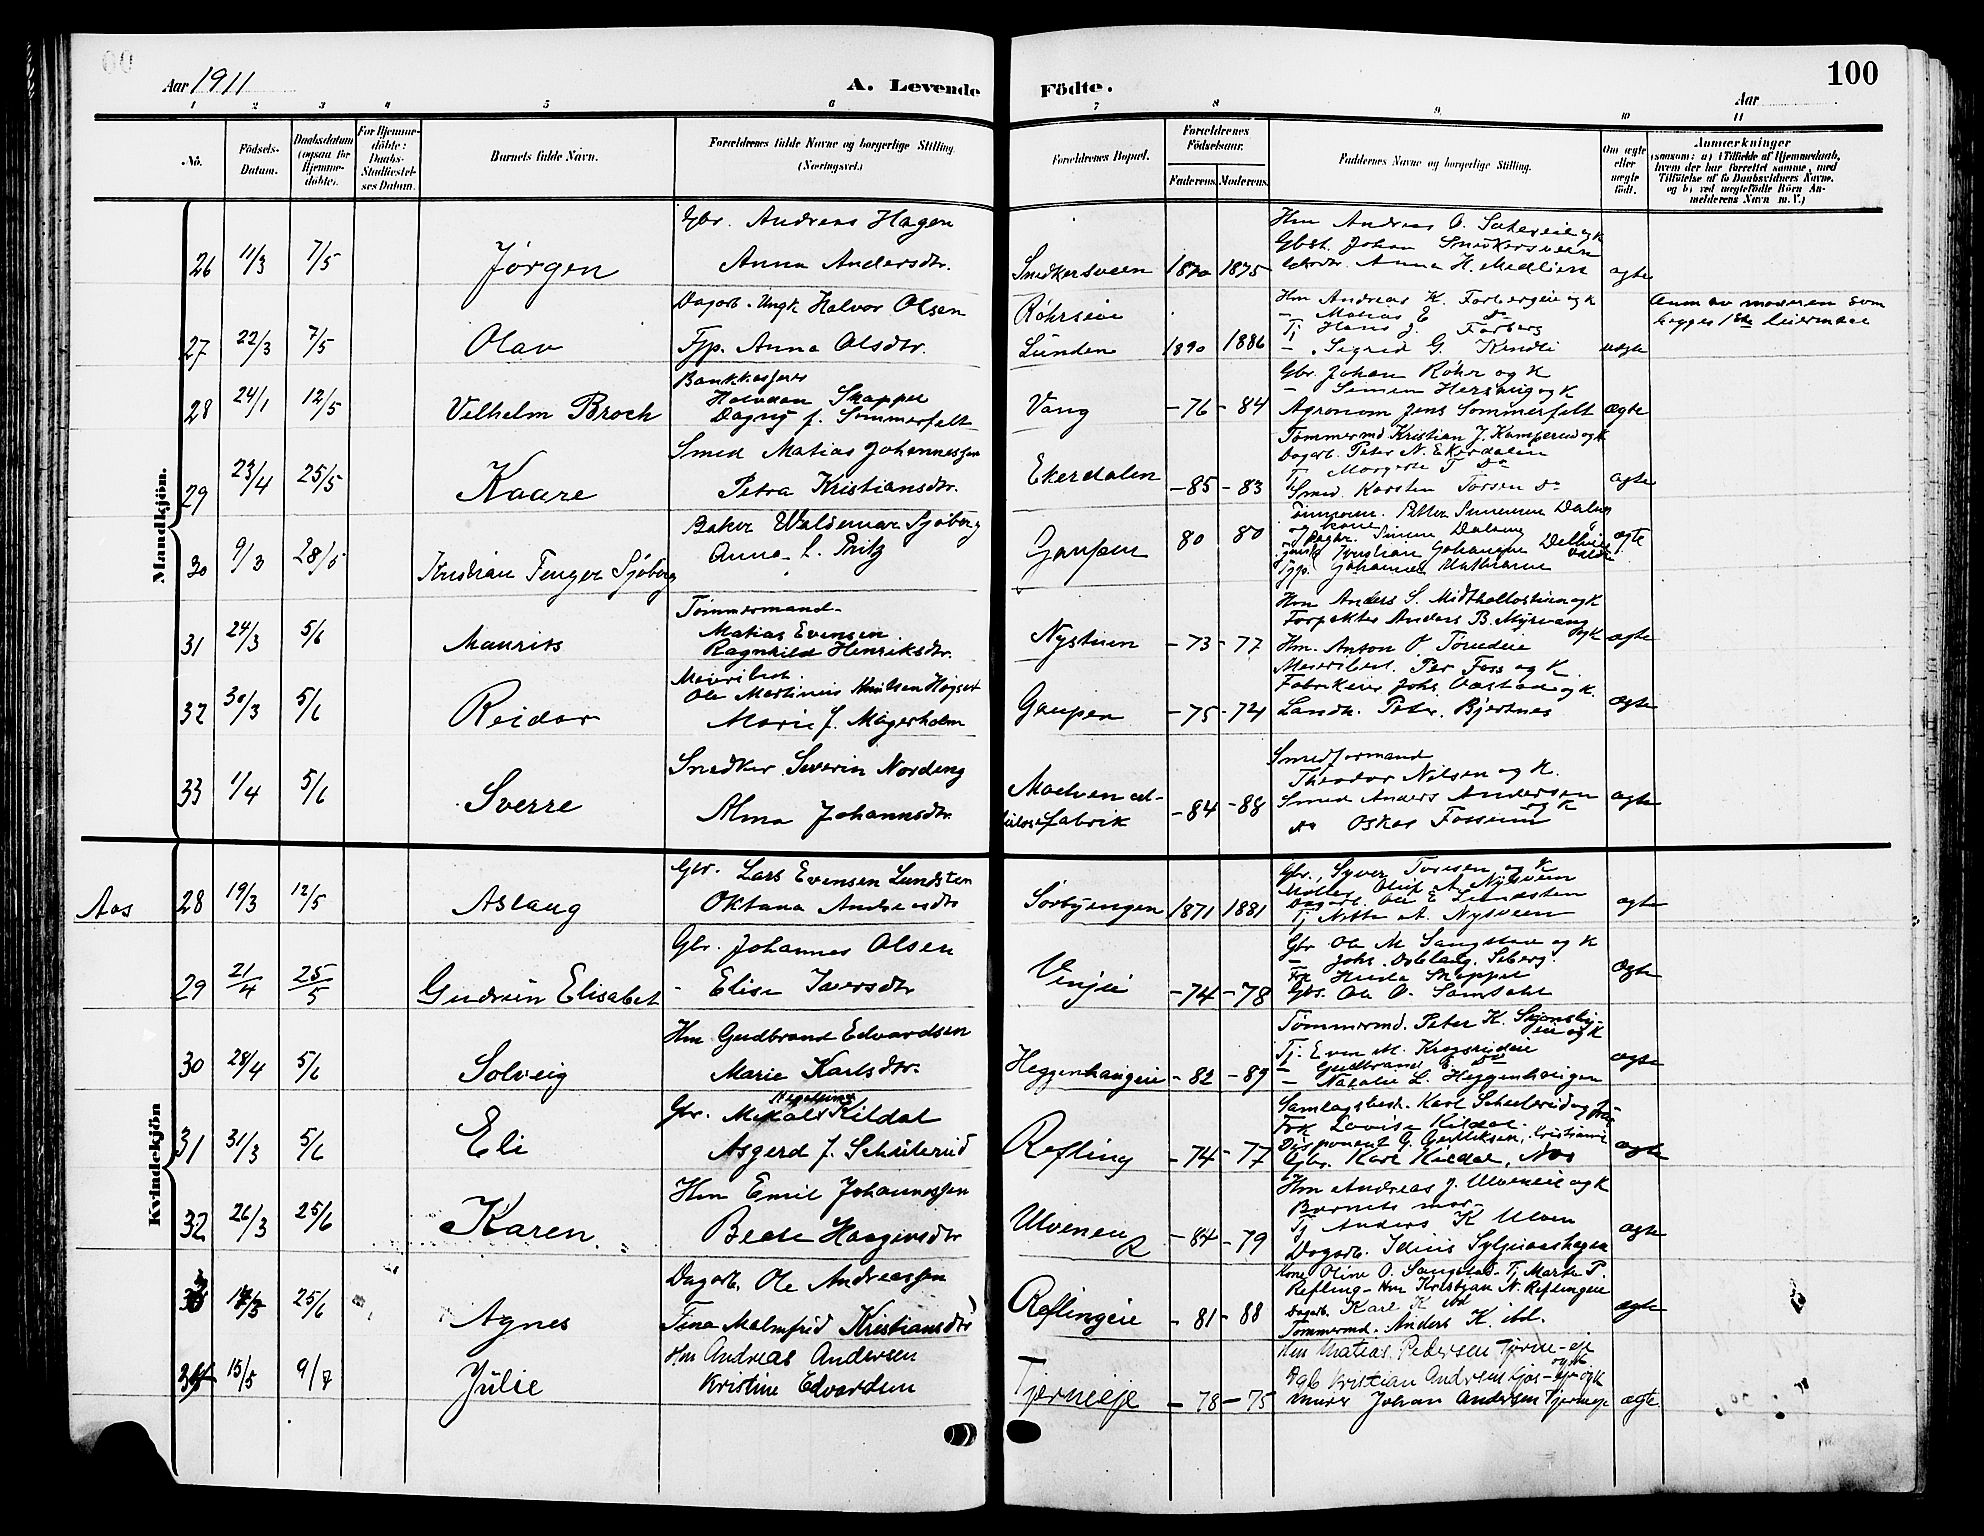 Aar 1911
A. Levende Födte.
Aar
100
1 2 3 4 5 6 7 8 9 10 11
No.
Födsels-Datum.
Daabsdatum (ogsaa for Hjemme-döbte).
For Hjemme-döbte: Daabs-Stadfæstel-ses Datum.
Barnets fulde Navn.
Forældrenes fulde Navne og borgerlige Stilling (Næringsvei.)
Forældrenes Bopæl.
Forældrenes Födselsaar.
Faderens. Moderens.
Faddernes Navne og borgerlige Stilling.
Om ægte eller uægte født.
Anmærkninger
(saasom: a) i Tilfælde af Hjemmedaab, hvem der har forrettet samme, med Tilföielse af to Daabsvidners Navne, og b) ved uægtefödte Börn An-melderens Navn m. V.)
Mandkjön.
26 11/3 7/5 Jørgen
Gbr. Andreas Hagen
Anna Andersdtr.
Smedkersveen 1870 1875
Hm Andreas O. Sætereie og K
Gbst. Johan Smedkersveen
Anna H. Medlien
ægte
27 22/3 7/5 Olav
Dagarb. Ungk Halvor Olsen
Tjp. Anna Olsdtr.
Röhrseie
Lunden 1890 1886
Hm Andreas K. Farbergeie og k
– Matias E do
Tj Hans J. Farberg
– Sigrid G. Kindli
uægte
Anm av moderen som
begges 1ste leiermaal
28 24/1 12/5 Vilhelm Broch
Bankkasserer
Halvdan Skappel
Dagny f. Sommerfelt
Vang –76 –84
Gbr. Johan Røhr og K
– Simen Hersoug og K
Agronom Jens Sommerfelt
ægte
29 23/4 25/5 Kaare
Smed Matias Johannessen
Petra Kristiansdtr.
Ekerdalen –85 –83
Tømmermd Kristian J. Kamperud og k
Dagarb. Peter N. Ekerdalen
T Margrete T do
Smed. Karsten Torsen do
ægte
30 9/3 28/5 Kristian Fenger Sjøberg
Baker Waldemar Sjøberg
Anna L. Pritz
Gaupen 80 80
og kone
ægte
31 24/3 5/6 Maurits
Tømmermand
Matias Evensen
Ragnhild Henriksdtr.
Nystuen –73 –77
Hm Anders S. Midthallostuen og K
Forpakter Anders B. Myrvang og K
Hm. Anton O. Torudeie
ægte
32 30/3 5/6 Reidar
Meieribest.
Ole Martinius Knutsen Høgset
Marie f. Mågerholm
Gaupen –75 –74
Meieribest. Per Foss og K.
Fabrikeier Johs. Aastad og k.
Landh. Peter Bjertnes
ægte
33 1/4 5/6 Sverre
Snedker Severin Nordeng
Alma Johannsdtr.
Moelven cel-
lulosefabrik –84 –88
Smedformand
Theodor Nilsen og K.
Smed Anders Andersen og K
do Oskar Fossum
ægte
Kvindekjön
Aas
28 19/3 12/5 Aslaug
Gbr. Lars Evensen Lundsten
Oktana Andreasdtr
Sørbyengen 1871 1881
Gbr. Syver Torsen og K
Møller Oluf A. Nysveen
Dagarb. Ole E Lundsten
Tj Netta A. Nysveen
ægte
29 21/4 25/5 Gudrun Elisabet
Gbr. Johannes Olsen
– Elise Iversdtr
Venjei –74 –78
Gbr Ole M Sangstad og K
Frk Hilda Skappel
Gbr. Ole O. Samdahl
ægte
30 28/4 5/6 Solveig
Hm Gudbrand Edvardsen
Marie Karlsdtr.
Heggenhaugeie –82 –89
Tømmermd. Peter K. Skjønsby-eie og K
Tj. Even M. Krogsrudeie
– Gudbrand E do
– Natalie L. Heggenhaugen
ægte
31 31/3 5/6 Eli
Gbr. Mikal Kildal
Asgerd f. Schulerud
Refling –74 –77
Samlagsbest. Karl Schulerud og frue
Frk Lovise Kildal.
Disponent G. Gulliksen, Kristiania
Gbr. Karl Kildal, Næs
ægte
32 26/3 25/6 Karen.
Hm Emil Johannessen
Beate Haagensdtr
Ulveneie R –84 –79
Hm Andreas J. Ulveneie og K
Barnets mor
Tj Anders K Ulven
Dagarb. Idius Syljuaashagen
ægte
33 17/3 25/6 Agnes
Dagarb. Ole Andreassen
Tina Malmfrid Kristiansdtr
Reflingeie –81 –88
Kone Oline O. Sangstad. Tj Marte P.
Refling– Hm Kristian N. Reflingeie
Dagarb. Karl K ibd
Tømmermd. Anders K. ibd.
ægte
34 15/5 9/7 Julie
Hm Andreas Andersen
Kristine Edvardsen
Tjerneeje –78 –75
Hm Matias Pedersen Tjerne-eje og K
Dgb Kristian Andersen Gjøs-eje og K
Murer Johan Andersen Tjerneeje
ægte